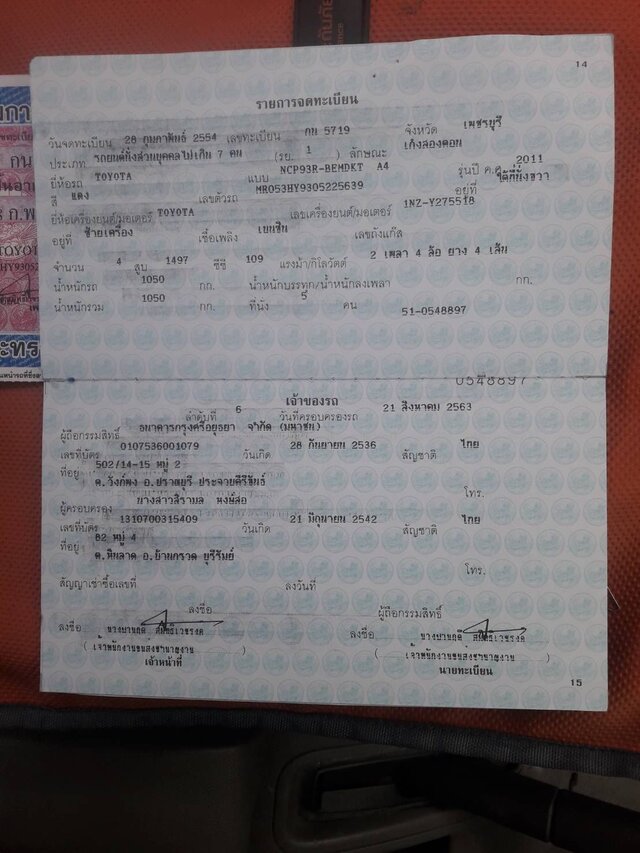 14
รายการจดทะเบียน
วันจดทะเบียน 28 กุมภาพันธ์ 2554 เลขทะเบียน กน 5719 จังหวัด เพชรบุรี
ประเภท รถยนต์นั่งส่วนบุคคลไม่เกิน 7 คน (รย. 1) ลักษณะ เก๋งสองตอน
ยี่ห้อรถ TOYOTA แบบ NCP93R-BEMDKT A4 รุ่นปี ค.ศ. 2011
สี แดง เลขตัวรถ MR053HY9305225639 อยู่ที่ ใต้ที่นั่งขวา
ยี่ห้อเครื่องยนต์/มอเตอร์ TOYOTA เลขเครื่องยนต์/มอเตอร์ 1NZ-Y275518
อยู่ที่ ซ้ายเครื่อง เชื้อเพลิง เบนซิน เลขถังแก๊ส
จำนวน 4 สูบ 1497 ซีซี 109 แรงม้า/กิโลวัตต์ 2 เพลา 4 ล้อ ยาง 4 เส้น
น้ำหนักรถ 1050 กก. น้ำหนักบรรทุก/น้ำหนักลงเพลา กก.
น้ำหนักรวม 1050 กก. ที่นั่ง 5 คน 51-0548897
0548897
เจ้าของรถ
ลำดับที่ 6 วันที่ครอบครองรถ 21 สิงหาคม 2563
ผู้ถือกรรมสิทธิ์ ธนาคารกรุงศรีอยุธยา จำกัด (มหาชน)
เลขที่บัตร 0107536001079 วันเกิด 28 กันยายน 2536 สัญชาติ ไทย
ที่อยู่ 502/14-15 หมู่ 2
ต.วังก์พง อ.ปราณบุรี ประจวบคีรีขันธ์ โทร.
ผู้ครอบครอง นางสาวสิรามล หงษ์สอ
เลขที่บัตร 1310700315409 วันเกิด 21 มิถุนายน 2542 สัญชาติ ไทย
ที่อยู่ 82 หมู่ 4
ต.หินลาด อ.บ้านกรวด บุรีรัมย์ โทร.
สัญญาเช่าซื้อเลขที่ ลงวันที่
ลงชื่อ ผู้ถือกรรมสิทธิ์
ลงชื่อ ลงชื่อ
( เจ้าพนักงานขนส่งชำนาญงาน ) ( เจ้าพนักงานขนส่งชำนาญงาน )
เจ้าหน้าที่ นายทะเบียน
15